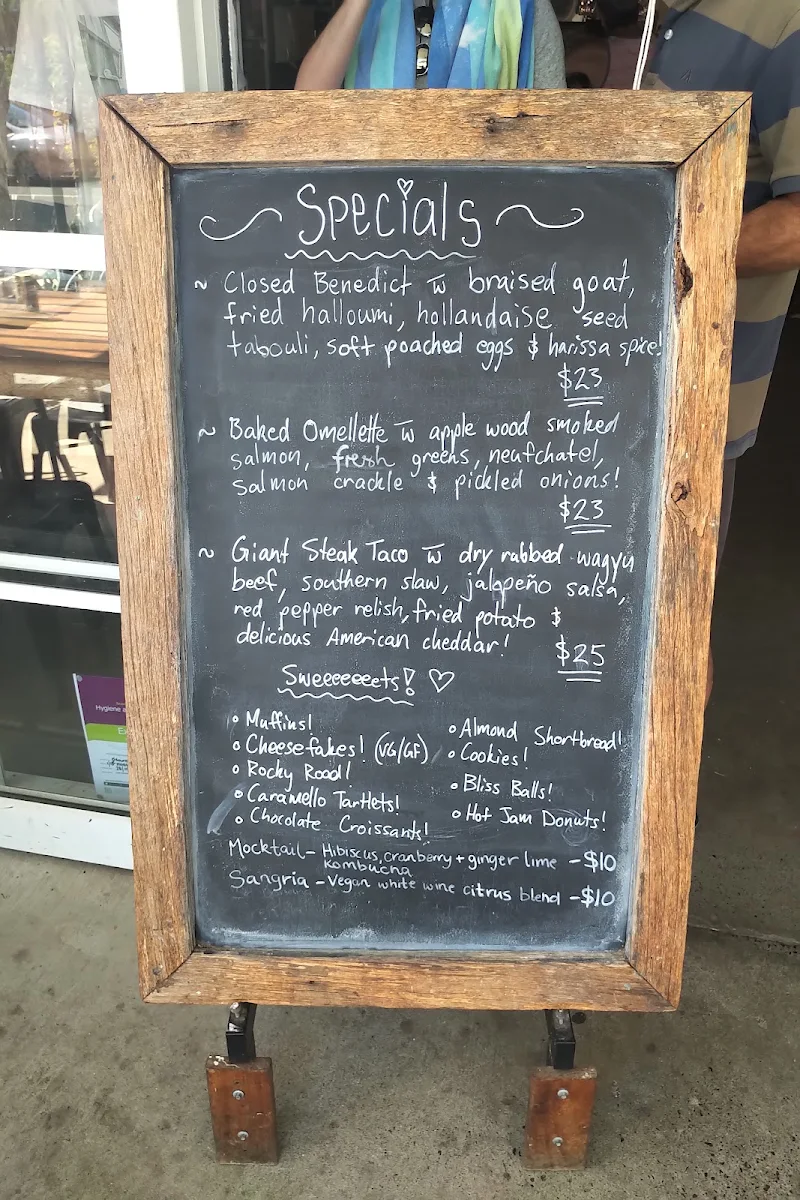 Specials
~ Closed Benedict w braised goat,
fried halloumi, hollandaise seed
tabouli, soft poached eggs & harissa spice!
$23
~ Baked Omellette w apple wood smoked
salmon, fresh greens, neufchatel,
salmon crackle & pickled onions!
$23
~ Giant Steak Taco w dry rubbed wagyu
beef, southern slaw, jalapeño salsa,
red pepper relish, fried potato &
delicious American cheddar!
$25
Sweeeeeeets! ♡
• Muffins!
• Cheesefakes! (VG/GF)
• Rocky Road!
• Caramello Tartlets!
• Chocolate Croissants!
• Almond Shortbread!
• Cookies!
• Bliss Balls!
• Hot Jam Donuts!
Mocktail - Hibiscus, cranberry + ginger lime - $10
Kombucha
Sangria - Vegan white wine citrus blend - $10
Hygiene